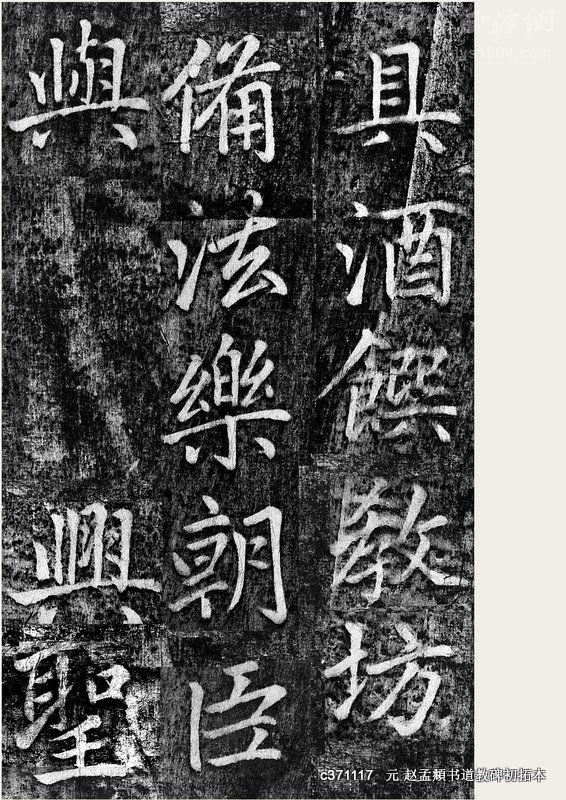 具酒饌教坊
備法樂朝臣
與
興聖
c371117 元 赵孟頫书道教碑初拓本